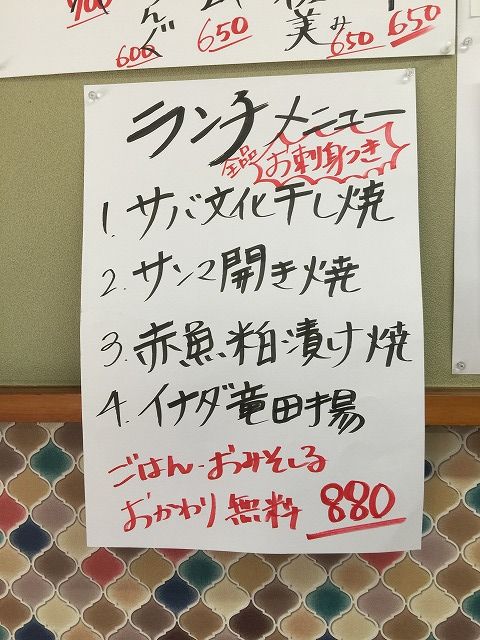 700
600
650
美
み
650
650
ランチメニュー
全品 お刺身つき
1. サバ文化干し焼
2. サンマ開き焼
3. 赤魚粕漬け焼
4. イナダ竜田揚
ごはん・おみそしる
おかわり無料 880